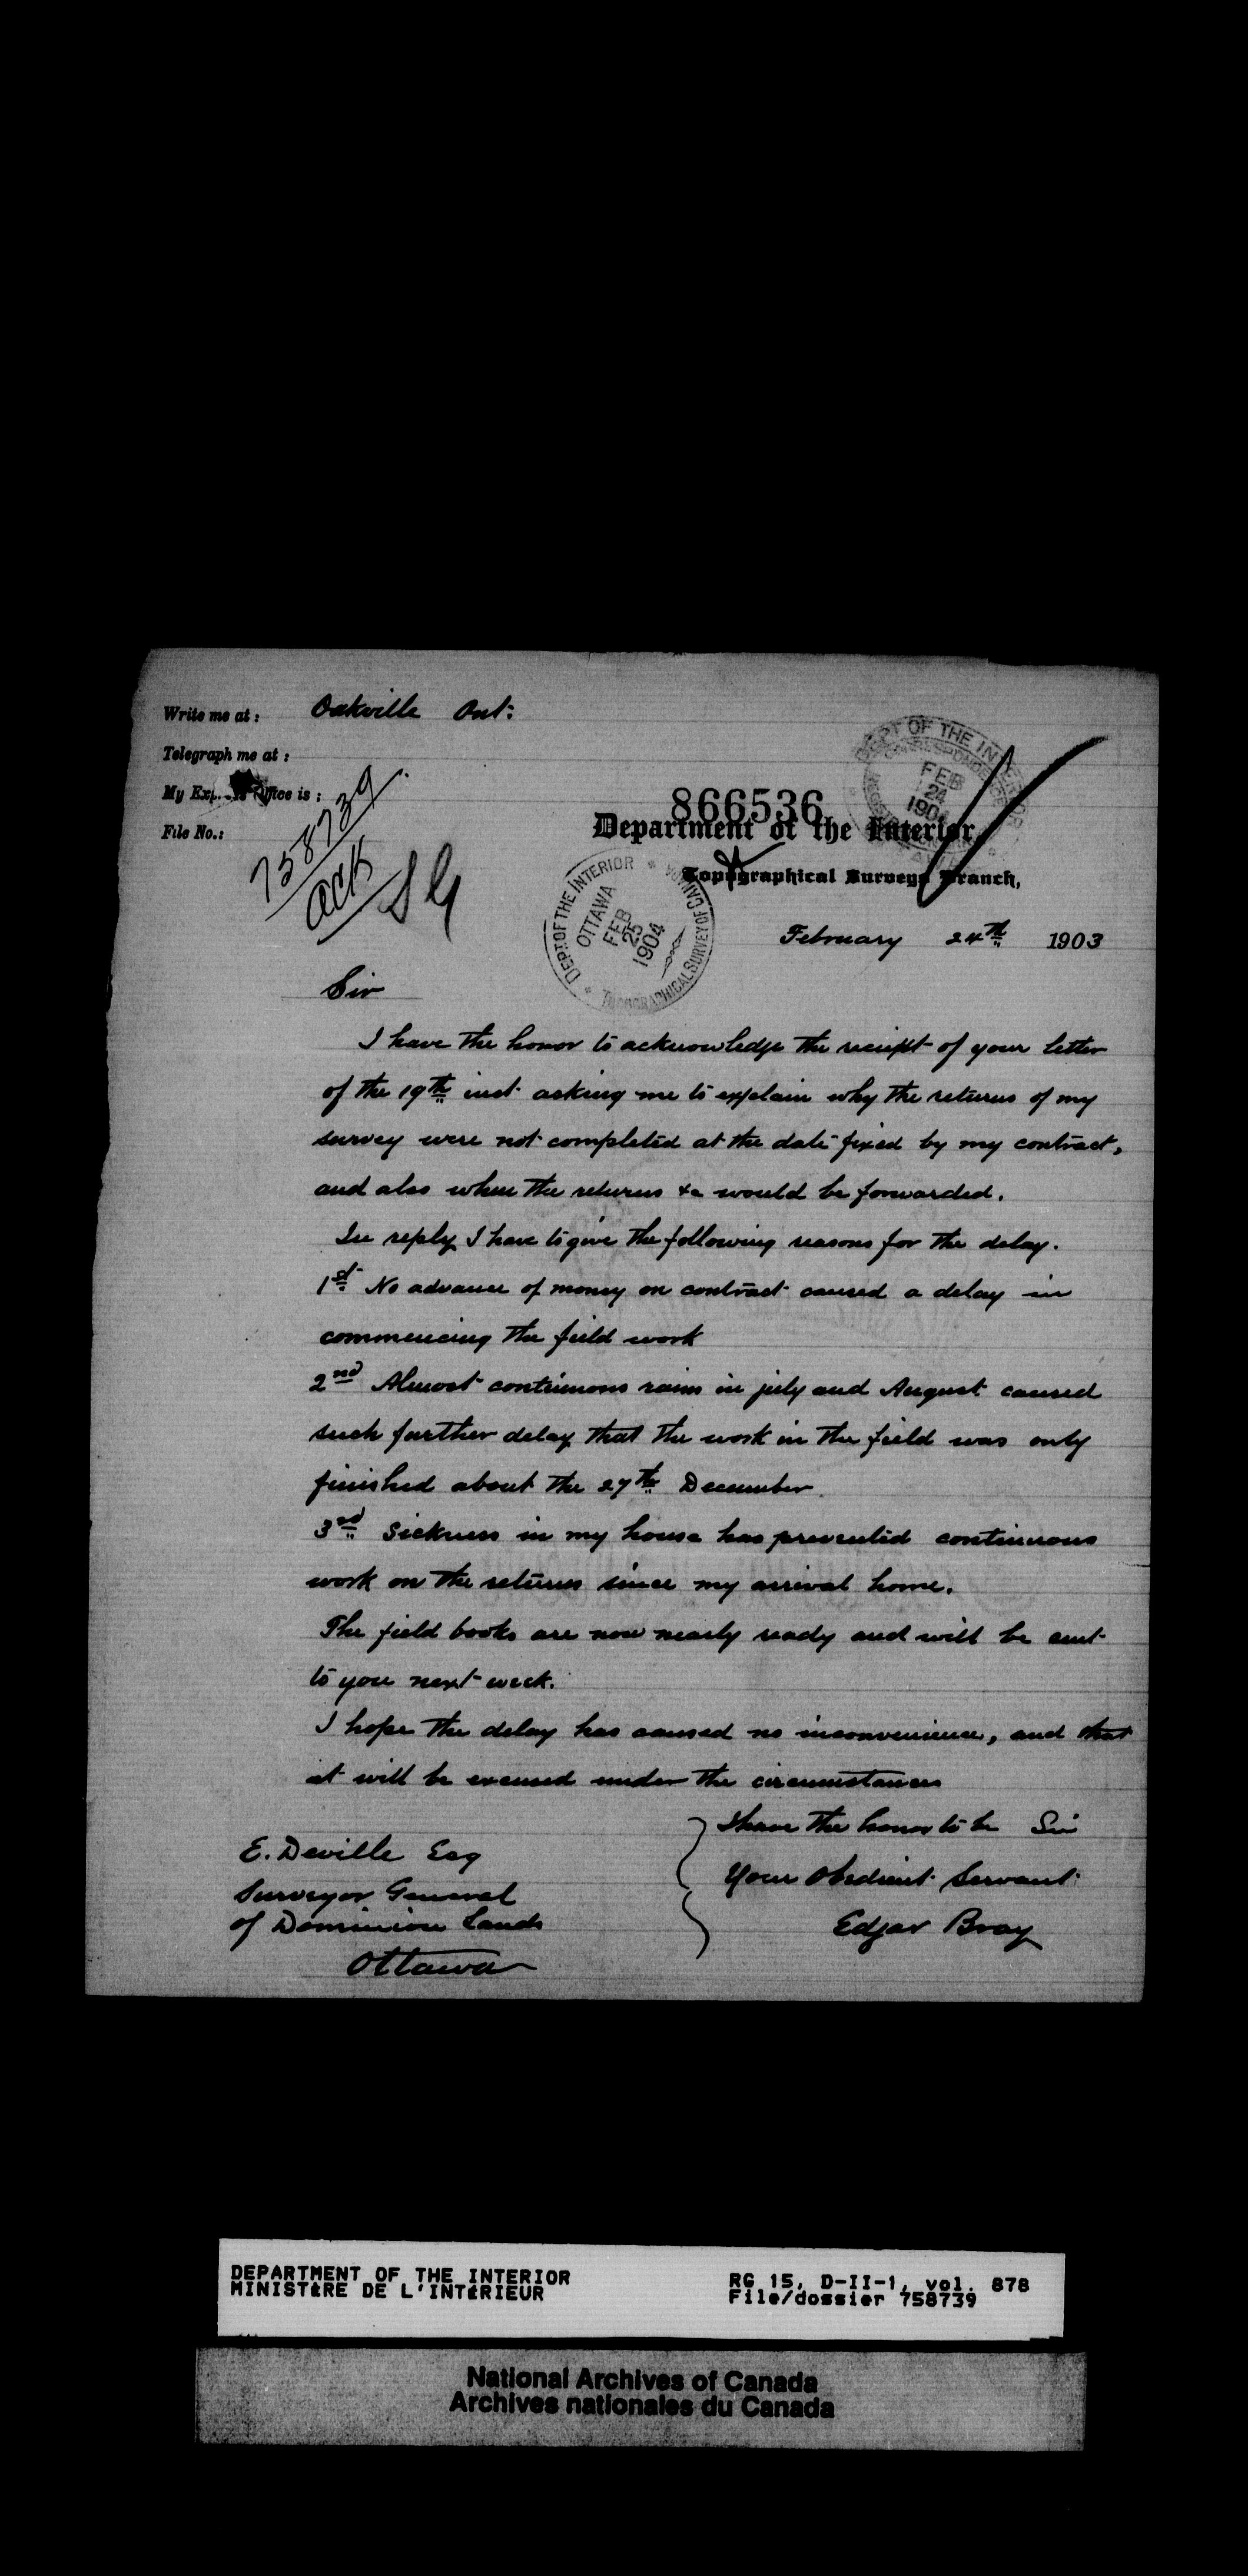 Write me at: Oakville Ont:
Telegraph me at:
My Express Office is:
File No.:
758739
Ack
SG
866536
Department of the Interior,
Topographical Surveys Branch,
DEPT OF THE INTERIOR
FEB
24
1904
DEPT. OF THE INTERIOR
OTTAWA
FEB
25
1904
TOPOGRAPHICAL SURVEY OF CANADA
February 24th 1903
Sir
I have the honor to acknowledge the receipt of your letter
of the 19th inst asking me to explain why the returns of my
survey were not completed at the date fixed by my contract,
and also when the returns &c would be forwarded.
In reply I have to give the following reasons for the delay.
1st No advance of money on contract caused a delay in
commencing the field work
2nd Almost continuous rains in july and August caused
such further delay that the work in the field was only
finished about the 27th December
3rd Sickness in my house has prevented continuous
work on the returns since my arrival home.
The field books are now nearly ready and will be sent
to you next week.
I hope the delay has caused no inconvenience, and that
it will be excused under the circumstances
I have the honor to be Sir
Your Obedient Servant
Edgar Bray
E. Deville Esq
Surveyor General
of Dominion Lands
Ottawa
DEPARTMENT OF THE INTERIOR
MINISTÈRE DE L'INTÉRIEUR
RG 15, D-II-1, vol. 878
File/dossier 758739
National Archives of Canada
Archives nationales du Canada